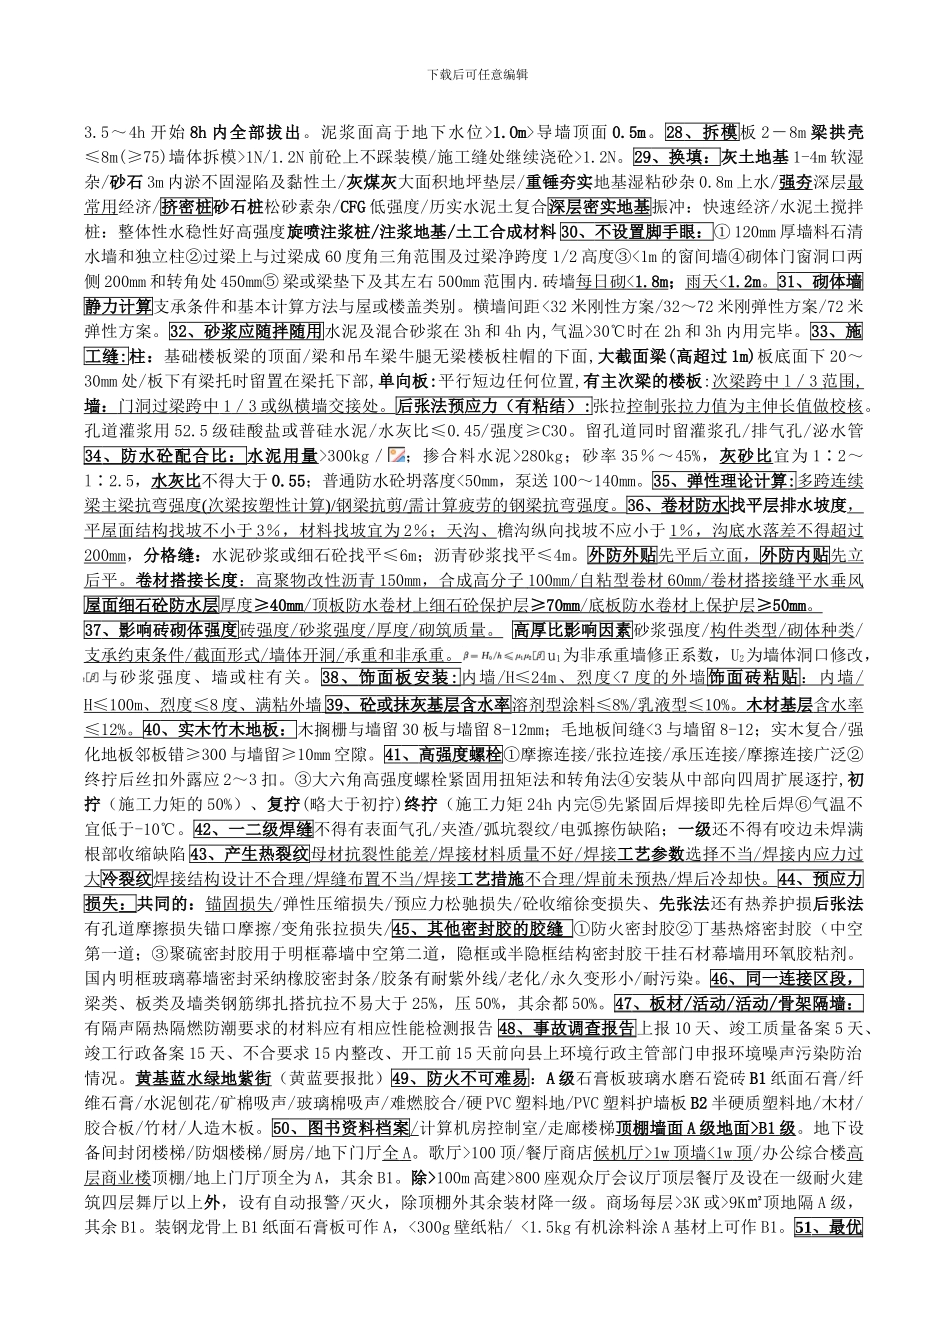 下载后可任意编辑
3.5～4h 开始 8h 内全部拔出。泥浆面高于地下水位>1.0m>导墙顶面 0.5m。28、拆模板 2－8m 梁拱壳
≤8m(≥75)墙体拆模>1N/1.2N 前砼上不踩装模/施工缝处继续浇砼>1.2N。29、换填：灰土地基 1-4m 软湿
杂/砂石 3m 内淤不固湿陷及黏性土/灰煤灰大面积地坪垫层/重锤夯实地基湿粘砂杂 0.8m 上水/强夯深层最
常用经济/挤密桩砂石桩松砂素杂/CFG 低强度/历实水泥土复合深层密实地基振冲：快速经济/水泥土搅拌
桩：整体性水稳性好高强度旋喷注浆桩/注浆地基/土工合成材料 30、不设置脚手眼：① 120mm 厚墙料石清
水墙和独立柱②过梁上与过梁成 60 度角三角范围及过梁净跨度 1/2 高度③<1m 的窗间墙④砌体门窗洞口两
侧 200mm 和转角处 450mm⑤ 梁或梁垫下及其左右 500mm 范围内.砖墙每日砌<1.8m；雨天<1.2m。31、砌体墙
静力计算支承条件和基本计算方法与屋或楼盖类别。横墙间距<32 米刚性方案/32～72 米刚弹性方案/72 米
弹性方案。32、砂浆应随拌随用水泥及混合砂浆在 3h 和 4h 内,气温>30℃时在 2h 和 3h 内用完毕。33、施
工缝:柱：基础楼板梁的顶面/梁和吊车梁牛腿无梁楼板柱帽的下面,大截面梁(高超过 1m)板底面下 20～
30mm 处/板下有梁托时留置在梁托下部,单向板:平行短边任何位置,有主次梁的楼板:次梁跨中 1／3 范围,
墙：门洞过梁跨中 1／3 或纵横墙交接处。后张法预应力（有粘结）:张拉控制张拉力值为主伸长值做校核。
孔道灌浆用 52.5 级硅酸盐或普硅水泥/水灰比≤0.45/强度≥C30。留孔道同时留灌浆孔/排气孔/泌水管
34、防水砼配合比：水泥用量>300kg／；掺合料水泥>280kg；砂率 35％～45%，灰砂比宜为 1∶2～
1∶2.5，水灰比不得大于 0.55；普通防水砼坍落度<50mm，泵送 100～140mm。35、弹性理论计算:多跨连续
梁主梁抗弯强度(次梁按塑性计算)/钢梁抗剪/需计算疲劳的钢梁抗弯强度。36、卷材防水找平层排水坡度，
平屋面结构找坡不小于 3％，材料找坡宜为 2％；天沟、檐沟纵向找坡不应小于 1％，沟底水落差不得超过
200mm，分格缝：水泥砂浆或细石砼找平≤6m；沥青砂浆找平≤4m。外防外贴先平后立面，外防内贴先立
后平。卷材搭接长度：高聚物改性沥青 150mm，合成高分子 100mm/自粘型卷材 60mm/卷材搭接缝平水垂风
屋面细石砼防水层厚度≥40mm/顶板防水卷材上细石砼保护层≥70mm/底板防水卷材上保护层≥50mm。
37、影响砖砌体强度砖强度/砂浆强度/厚度/砌筑质量。 高厚比影响因素砂浆强度/构件类型/砌体种类/
支承约束条件/截面形式/墙体开洞/承重和非承重。β＝H₀/h≤μ₁μ₂[β]u1 为非承重墙修正系数，U2 为墙体洞口修改，
[β]与砂浆强度、墙或柱有关。38、饰面板安装:内墙/H≤24m、烈度<7 度的外墙饰面砖粘贴：内墙/
H≤100m、烈度≤8 度、满粘外墙 39、砼或抹灰基层含水率溶剂型涂料≤8%/乳液型≤10%。木材基层含水率
≤12%。40、实木竹木地板：木搁栅与墙留 30 板与墙留 8-12mm；毛地板间缝<3 与墙留 8-12；实木复合/强
化地板邻板错≥300 与墙留≥10mm 空隙。41、高强度螺栓①摩擦连接/张拉连接/承压连接/摩擦连接广泛②
终拧后丝扣外露应 2～3 扣。③大六角高强度螺栓紧固用扭矩法和转角法④安装从中部向四周扩展逐拧,初
拧（施工力矩的 50%）、复拧(略大于初拧)终拧（施工力矩 24h 内完⑤先紧固后焊接即先栓后焊⑥气温不
宜低于-10℃。42、一二级焊缝不得有表面气孔/夹渣/弧坑裂纹/电弧擦伤缺陷；一级还不得有咬边未焊满
根部收缩缺陷 43、产生热裂纹母材抗裂性能差/焊接材料质量不好/焊接工艺参数选择不当/焊接内应力过
大冷裂纹焊接结构设计不合理/焊缝布置不当/焊接工艺措施不合理/焊前未预热/焊后冷却快。44、预应力
损失：共同的：锚固损失/弹性压缩损失/预应力松驰损失/砼收缩徐变损失、先张法还有热养护损后张法
有孔道摩擦损失锚口摩擦/变角张拉损失/45、其他密封胶的胶缝 ①防火密封胶②丁基热熔密封胶（中空
第一道；③聚硫密封胶用于明框幕墙中空第二道，隐框或半隐框结构密封胶干挂石材幕墙用环氧胶粘剂。
国内明框玻璃幕墙密封采纳橡胶密封条/胶条有耐紫外线/老化/永久变形小/耐污染。46、同一连接区段，
梁类、板类及墙类钢筋绑扎搭抗拉不易大于 25%，压 50%，其余都 50%。47、板材/活动/活动/骨架隔墙：
有隔声隔热隔燃防潮要求的材料应有相应性能检测报告 48、事故调查报告上报 10 天、竣工质量备案 5 天、
竣工行政备案 15 天、不合要求 15 内整改、开工前 15 天前向县上环境行政主管部门申报环境噪声污染防治
情况。黄基蓝水绿地紫街（黄蓝要报批）49、防火不可难易：A 级石膏板玻璃水磨石瓷砖 B1 纸面石膏/纤
维石膏/水泥刨花/矿棉吸声/玻璃棉吸声/难燃胶合/硬 PVC 塑料地/PVC 塑料护墙板 B2 半硬质塑料地/木材/
胶合板/竹材/人造木板。50、图书资料档案/计算机房控制室/走廊楼梯顶棚墙面 A 级地面>B1 级。地下设
备间封闭楼梯/防烟楼梯/厨房/地下门厅全 A。歌厅>100 顶/餐厅商店候机厅>1w 顶墙<1w 顶/办公综合楼高
层商业楼顶棚/地上门厅顶全为 A，其余 B1。除>100m 高建>800 座观众厅会议厅顶层餐厅及设在一级耐火建
筑四层舞厅以上外，设有自动报警/灭火，除顶棚外其余装材降一级。商场每层>3K 或>9K㎡顶地隔 A 级，
其余 B1。装钢龙骨上 B1 纸面石膏板可作 A，<300g 壁纸粘/ <1.5kg 有机涂料涂 A 基材上可作 B1。51、最优